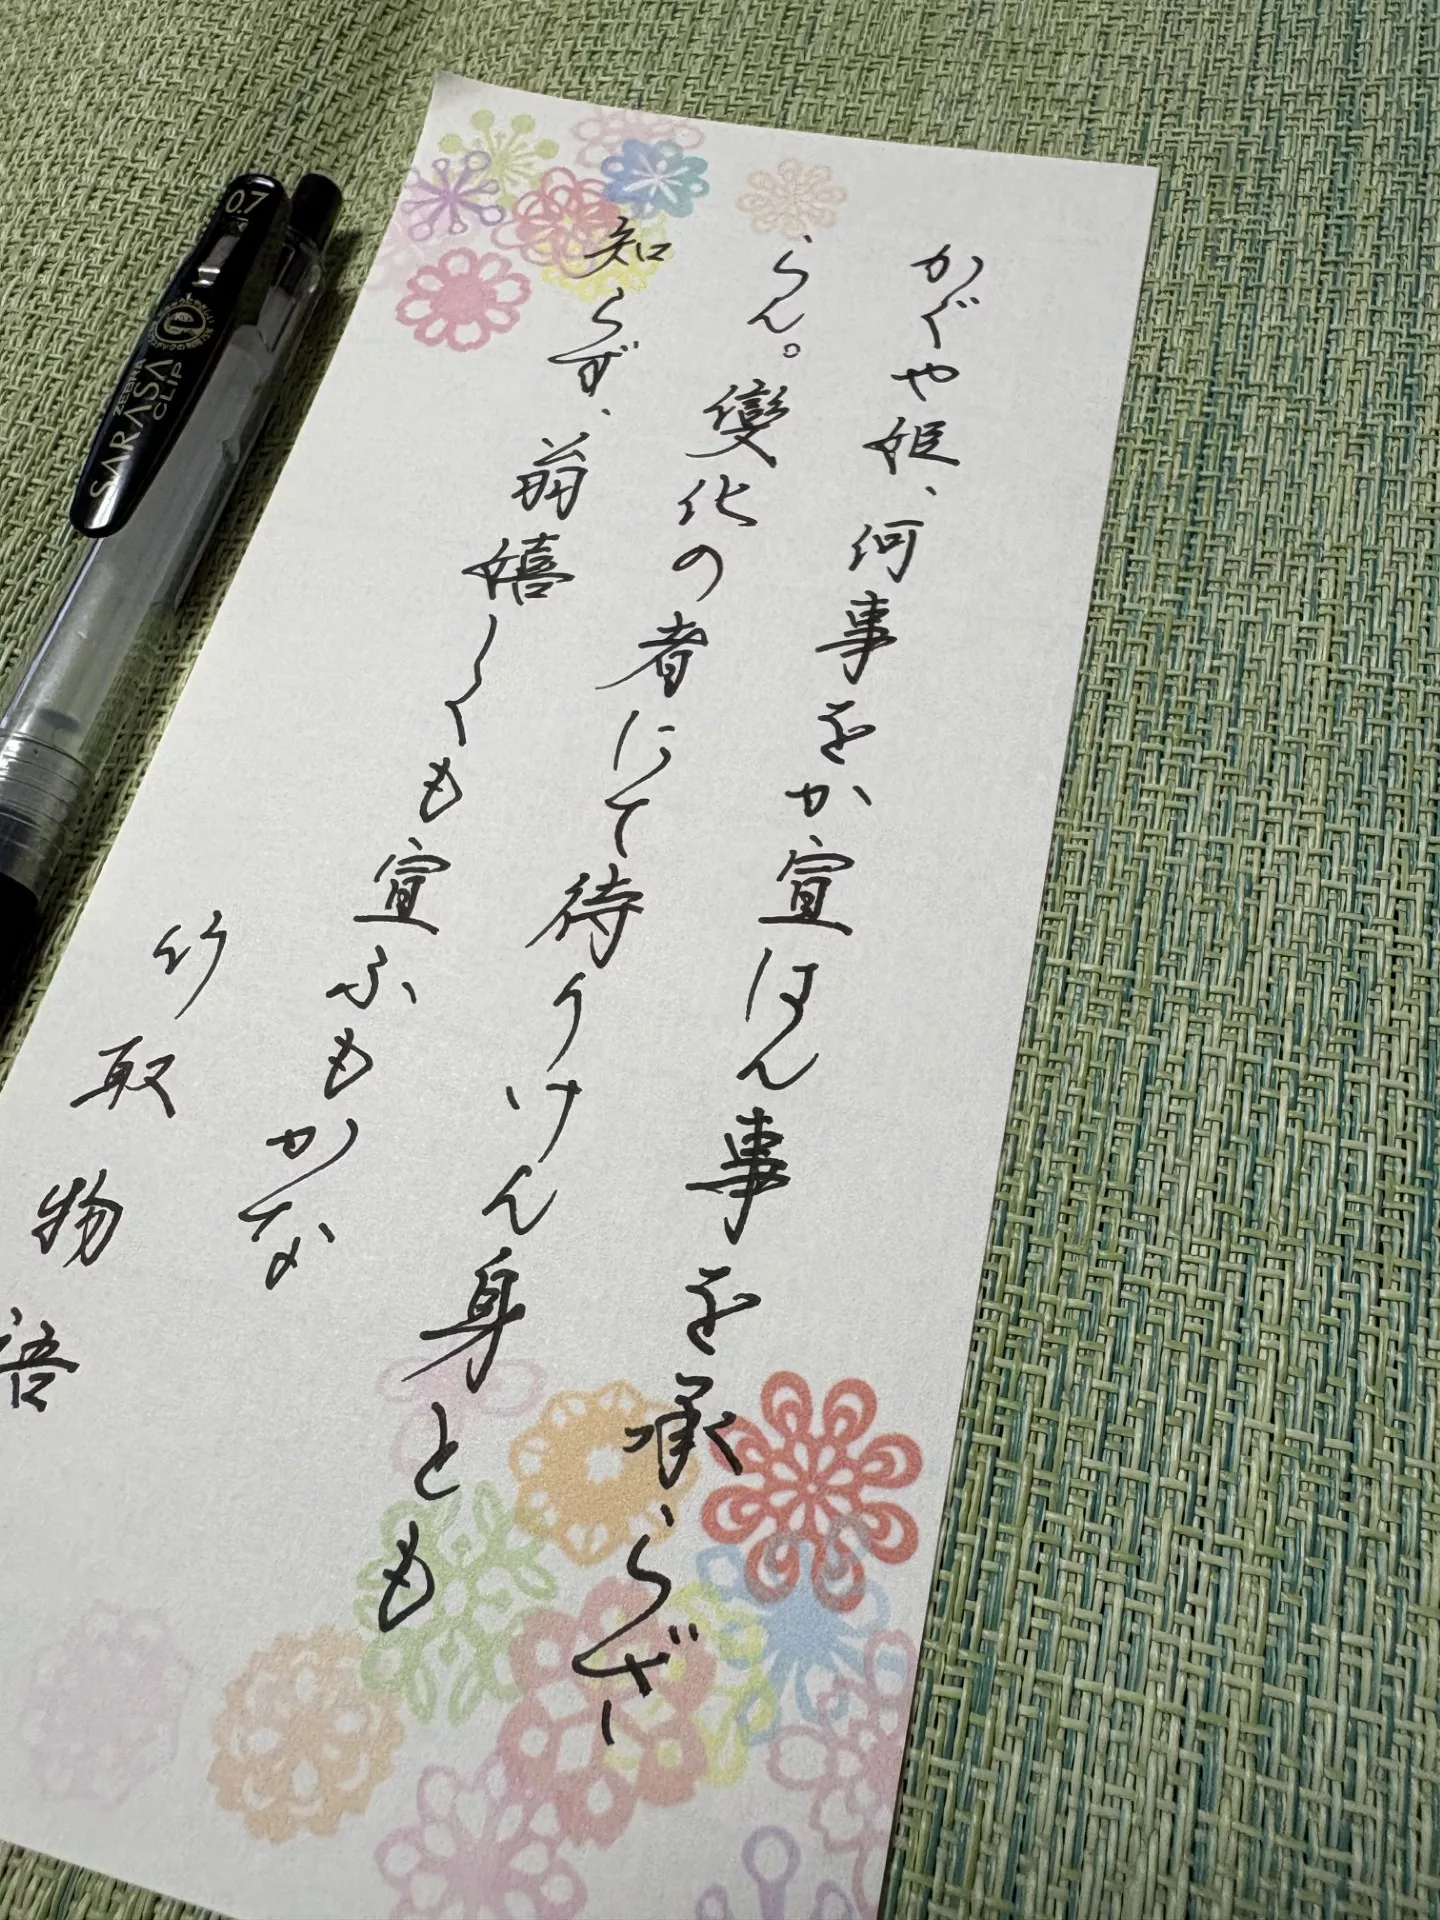 かぐや姫、何事をか宣はん事を承らざ
らん。變化の者にて待りけん身とも
知らず、翁嬉しくも宣ふもかな
竹取物語
0.7
ZEBRA
SARASA
CLIP